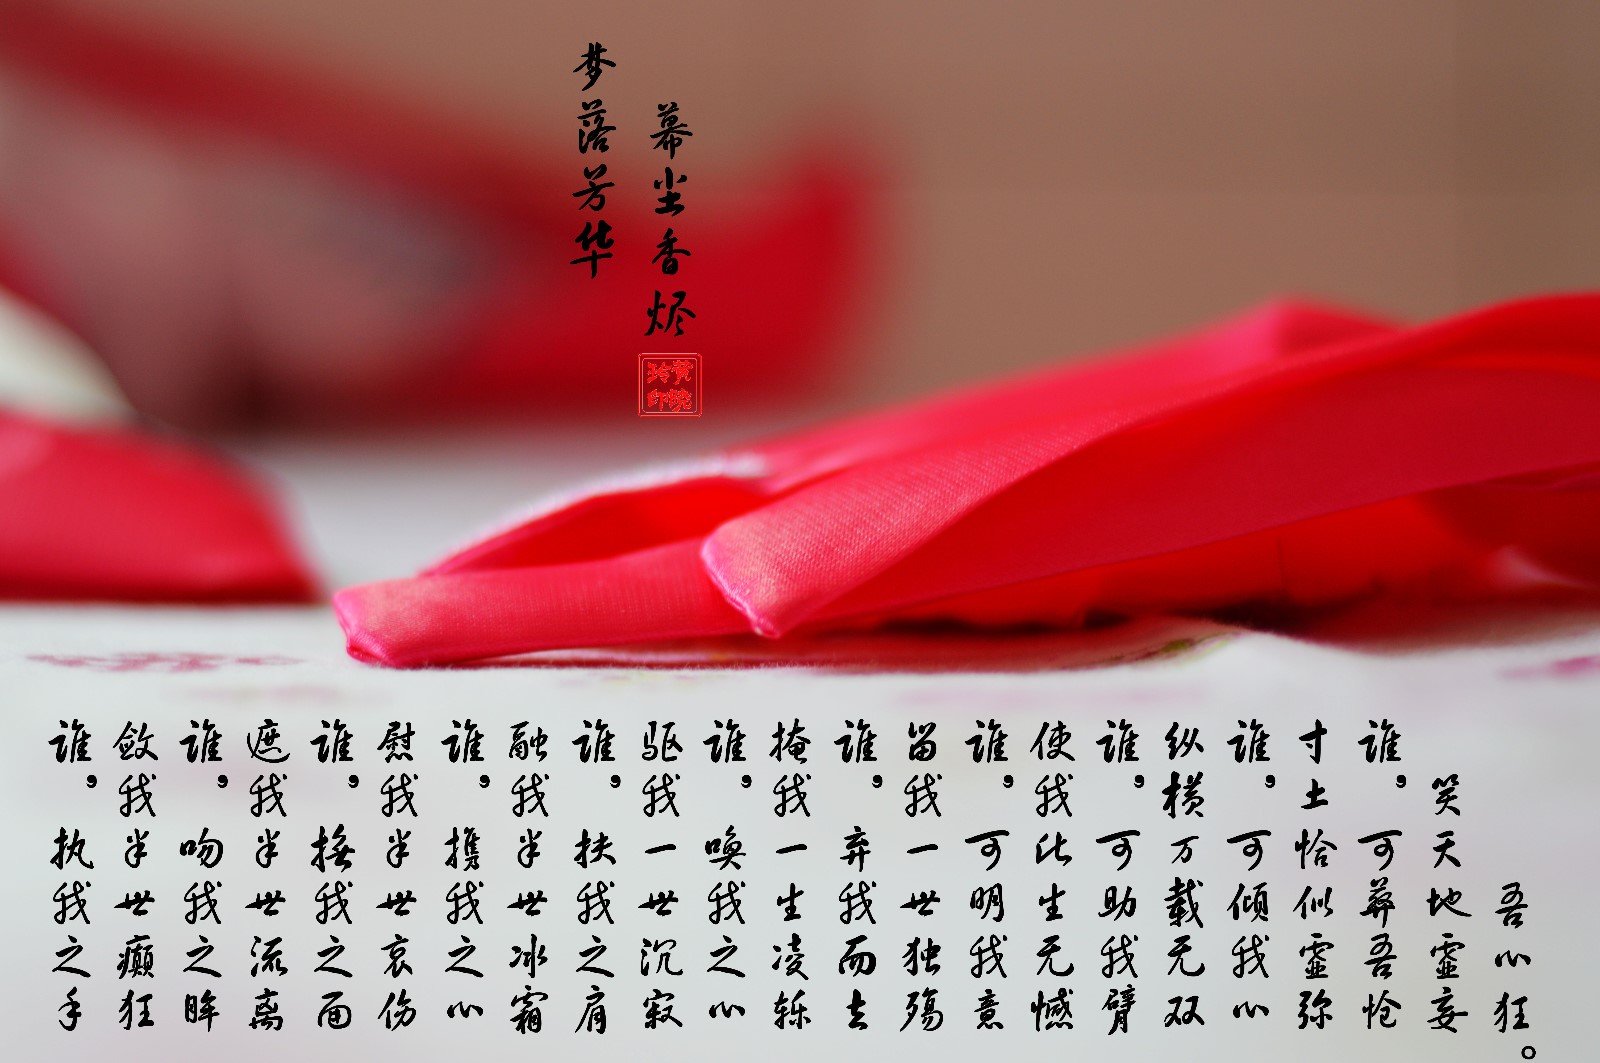 梦落芳华
幕尘香烬
谁，执我之手
敛我半世癫狂
谁，吻我之眸
遮我半世流离
谁，抚我之面
慰我半世哀伤
谁，携我之心
融我半世冰霜
谁，扶我之肩
驱我一世沉寂
谁，唤我之心
掩我一生凌轹
谁，弃我而去
留我一世独殇
谁，可明我意
使我此生无憾
谁，可助我臂
纵横万载无双
谁，可倾我心
寸土恰似虚弥
谁，可葬吾怆
笑天地虚妄
吾心狂。